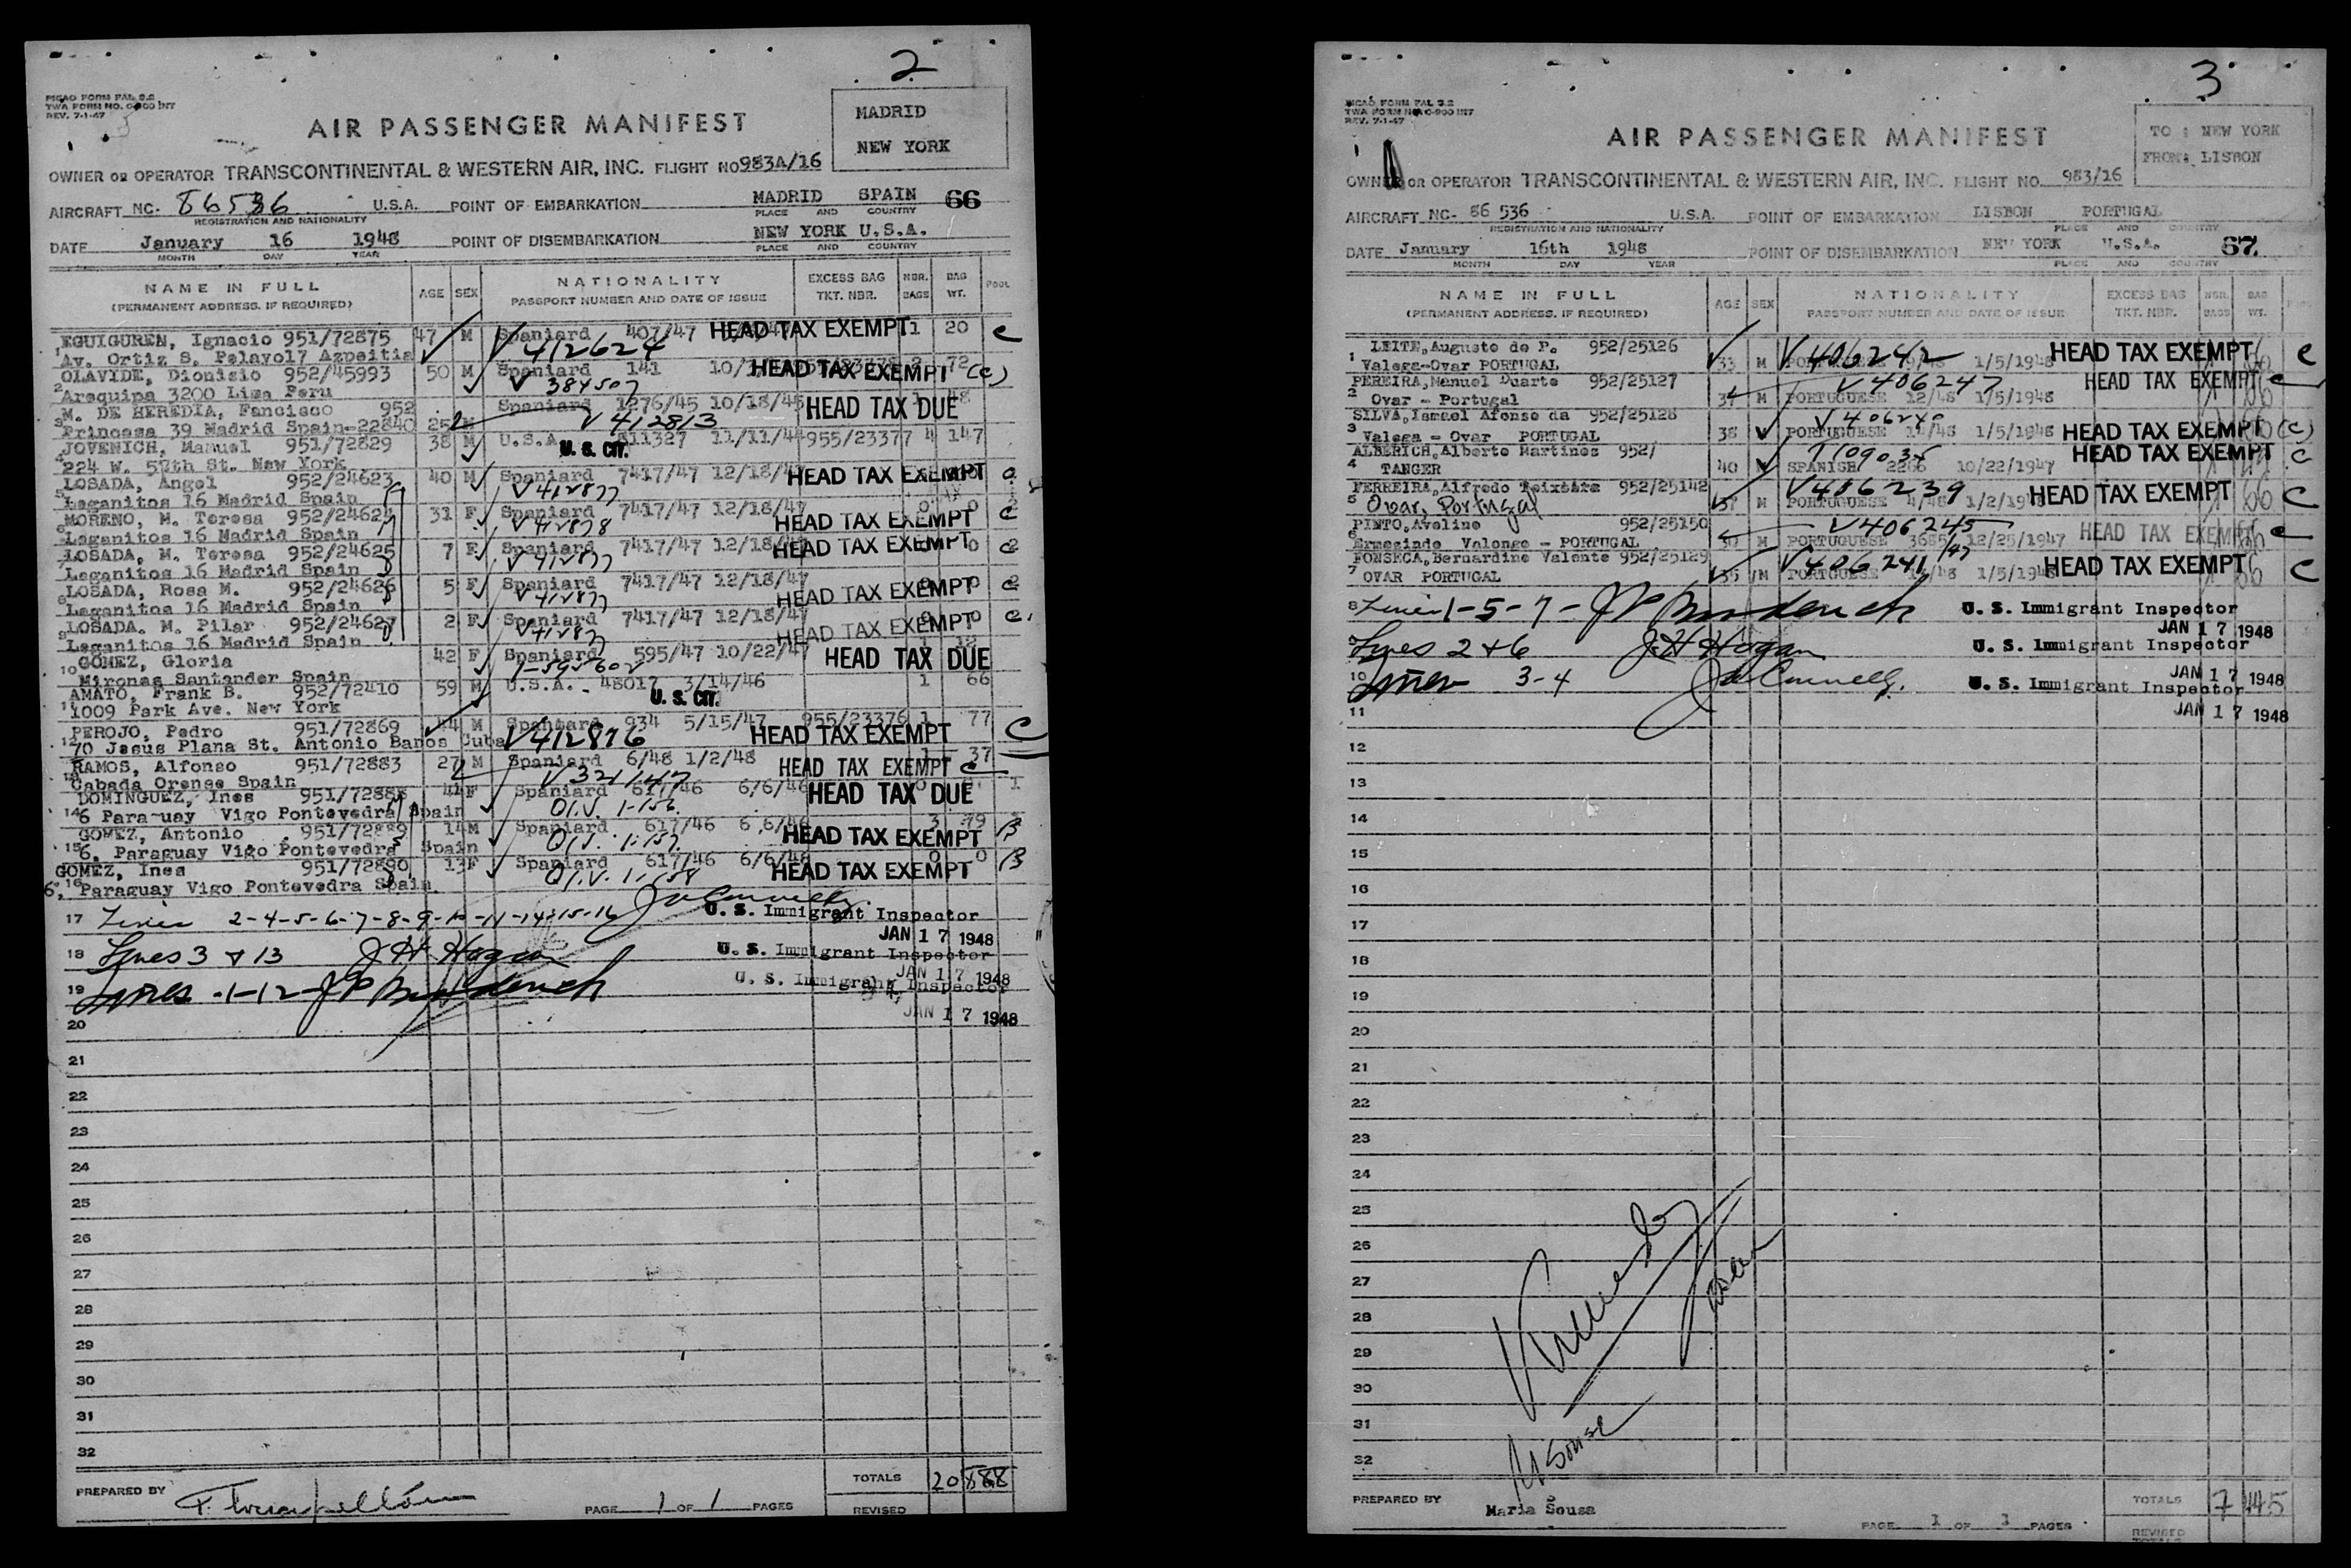 2
PICAO FORM FAL 2.2
TWA FORM NO. O-900 INT
REV. 7-1-47
AIR PASSENGER MANIFEST
MADRID
NEW YORK
OWNER OR OPERATOR TRANSCONTINENTAL & WESTERN AIR, INC. FLIGHT NO 983A/16
AIRCRAFT NC- 86536 U.S.A. POINT OF EMBARKATION MADRID SPAIN 66
REGISTRATION AND NATIONALITY PLACE AND COUNTRY
DATE January 16 1948 POINT OF DISEMBARKATION NEW YORK U.S.A.
MONTH DAY YEAR PLACE AND COUNTRY
NAME IN FULL AGE SEX NATIONALITY EXCESS BAG NBR. BAG POOL
(PERMANENT ADDRESS. IF REQUIRED) PASSPORT NUMBER AND DATE OF ISSUE TKT. NBR. BAGS WT.
EGUIGUREN, Ignacio 951/72875 47 M Spaniard 407/47 HEAD TAX EXEMPT 1 20 C
1 Av. Ortiz S. Pelayo17 Azpeitia V 412624
OLAVIDE, Dionisio 952/45993 50 M Spaniard 141 HEAD TAX EXEMPT 72 (C)
2 Arequipa 3200 Lima Peru V 384507
M. DE HEREDIA, Fancisco 952 Spaniard 1276/45 10/18/45 HEAD TAX DUE 48
3 Princesa 39 Madrid Spain-22840 25 M V 412813
JOVENICH, Manuel 951/72829 38 M U.S.A. 811327 11/11/44 955/23377 4 147
4 224 W. 57th St. New York U. S. CIT.
LOSADA, Angel 952/24623 40 M Spaniard 7417/47 12/18/47 HEAD TAX EXEMPT C
5 Leganitos 16 Madrid Spain V 412877
MORENO, M. Teresa 952/24624 31 F Spaniard 7417/47 12/18/47 HEAD TAX EXEMPT 0 C
6 Leganitos 16 Madrid Spain V 412878
LOSADA, M. Teresa 952/24625 7 F Spaniard 7417/47 12/18/47 HEAD TAX EXEMPT 0 C
7 Leganitos 16 Madrid Spain V 412877
LOSADA, Rosa M. 952/24626 5 F Spaniard 7417/47 12/18/47 HEAD TAX EXEMPT 0 C
8 Leganitos 16 Madrid Spain V 412877
LOSADA. M. Pilar 952/24627 2 F Spaniard 7417/47 12/18/47 HEAD TAX EXEMPT 0 C
9 Leganitos 16 Madrid Spain V 412877
GOMEZ, Gloria 42 F Spaniard 595/47 10/22/47 HEAD TAX DUE
10 Mironas Santander Spain
AMATO, Frank B. 952/72410 59 M U.S.A. 48017 3/14/46 1 66
11 1009 Park Ave. New York U. S. CIT.
PEROJO, Pedro 951/72869 44 M Spaniard 934 5/15/47 955/23376 1 77
12 70 Jesus Plana St. Antonio Banos Cuba V 412876 HEAD TAX EXEMPT C
RAMOS, Alfonso 951/72883 27 M Spaniard 6/48 1/2/48 HEAD TAX EXEMPT 1 37 C
13 Cabada Orense Spain
DOMINGUEZ, Ines 951/72888 44 F Spaniard 617/46 6/6/46 HEAD TAX DUE 0 1
14 6 Para-uay Vigo Pontevedra Spain Q.I.V. 1-156
GOMEZ, Antonio 951/72889 14 M Spaniard 617/46 6/6/46 HEAD TAX EXEMPT 3 79 B
15 6, Paraguay Vigo Pontevedra Spain Q.I.V. 1-157
GOMEZ, Ines 951/72890 13 F Spaniard 617/46 6/6/46 HEAD TAX EXEMPT 0 0 B
6, 16 Paraguay Vigo Pontevedra Spain. Q.I.V. 1-158
17 Lines 2-4-5-6-7-8-9-10-11-14-15-16 U. S. Immigrant Inspector
JAN 17 1948
18 Lines 3 & 13 J H Hogan U. S. Immigrant Inspector
JAN 17 1948
19 Lines -1-12- U. S. Immigrant Inspector
JAN 17 1948
20
21
22
23
24
25
26
27
28
29
30
31
32
PREPARED BY PAGE 1 OF 1 PAGES TOTALS 20 888
REVISED
3
PICAO FORM FAL 2.2
TWA FORM NO. O-900 INT
REV. 7-1-47
AIR PASSENGER MANIFEST
TO : NEW YORK
FROM: LISBON
OWNER OR OPERATOR TRANSCONTINENTAL & WESTERN AIR, INC. FLIGHT NO. 983/16
AIRCRAFT NC- 86 536 U.S.A. POINT OF EMBARKATION LISBON PORTUGAL
REGISTRATION AND NATIONALITY PLACE AND COUNTRY
DATE January 16th 1948 POINT OF DISEMBARKATION NEW YORK U.S.A. 67
MONTH DAY YEAR PLACE AND COUNTRY
NAME IN FULL AGE SEX NATIONALITY EXCESS BAG NBR. BAG POOL
(PERMANENT ADDRESS. IF REQUIRED) PASSPORT NUMBER AND DATE OF ISSUE TKT. NBR. BAGS WT.
LEITE, Augusto de P. 952/25126 V 406242 HEAD TAX EXEMPT C
1 Valega-Ovar PORTUGAL 33 M PORTUGUESE 1/5/1948
PEREIRA, Manuel Duarte 952/25127 V 406247 HEAD TAX EXEMPT C
2 Ovar - Portugal 34 M PORTUGUESE 12/48 1/5/1948
SILVA, Ismael Afonso da 952/25128 V 406240
3 Valega - Ovar PORTUGAL 38 PORTUGUESE 14/48 1/5/1948 HEAD TAX EXEMPT (C)
ALBERICH, Alberto Martines 952/ HEAD TAX EXEMPT C
4 TANGER 40 M SPANISH 2266 10/22/1947
FERREIRA, Alfredo Teixeira 952/25142 V 406239 HEAD TAX EXEMPT C
5 Ovar, Portugal 37 M PORTUGUESE 4/48 1/2/1948
PINTO, Avelino 952/25150 V 406245
6 Ermezinde Valongo - PORTUGAL M PORTUGUESE 3665/47 12/25/1947 HEAD TAX EXEMPT C
FONSECA, Bernardino Valente 952/25129 V 406241 HEAD TAX EXEMPT C
7 OVAR PORTUGAL 35 M PORTUGUESE 1/5/1948
8 Lines 1-5-7- U. S. Immigrant Inspector
JAN 17 1948
9 Lines 2 & 6 J. H Hogan U. S. Immigrant Inspector
JAN 17 1948
10 Lines 3-4 U. S. Immigrant Inspector
JAN 17 1948
11
12
13
14
15
16
17
18
19
20
21
22
23
24
25
26
27
28
29
30
31
32
M Sousa
PREPARED BY Maria Sousa PAGE 1 OF 1 PAGES TOTALS 7 445
REVISED
TOTALS